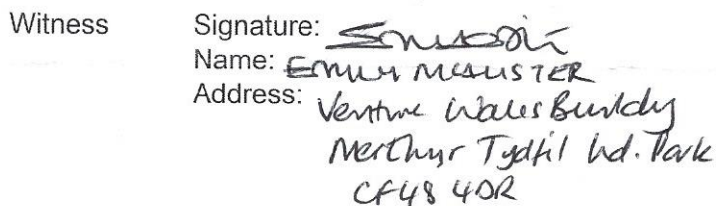 Witness Signature:
Name: EMILY MCALISTER
Address: Venture Wales Building
Merthyr Tydfil Ind. Park
CF48 4DR